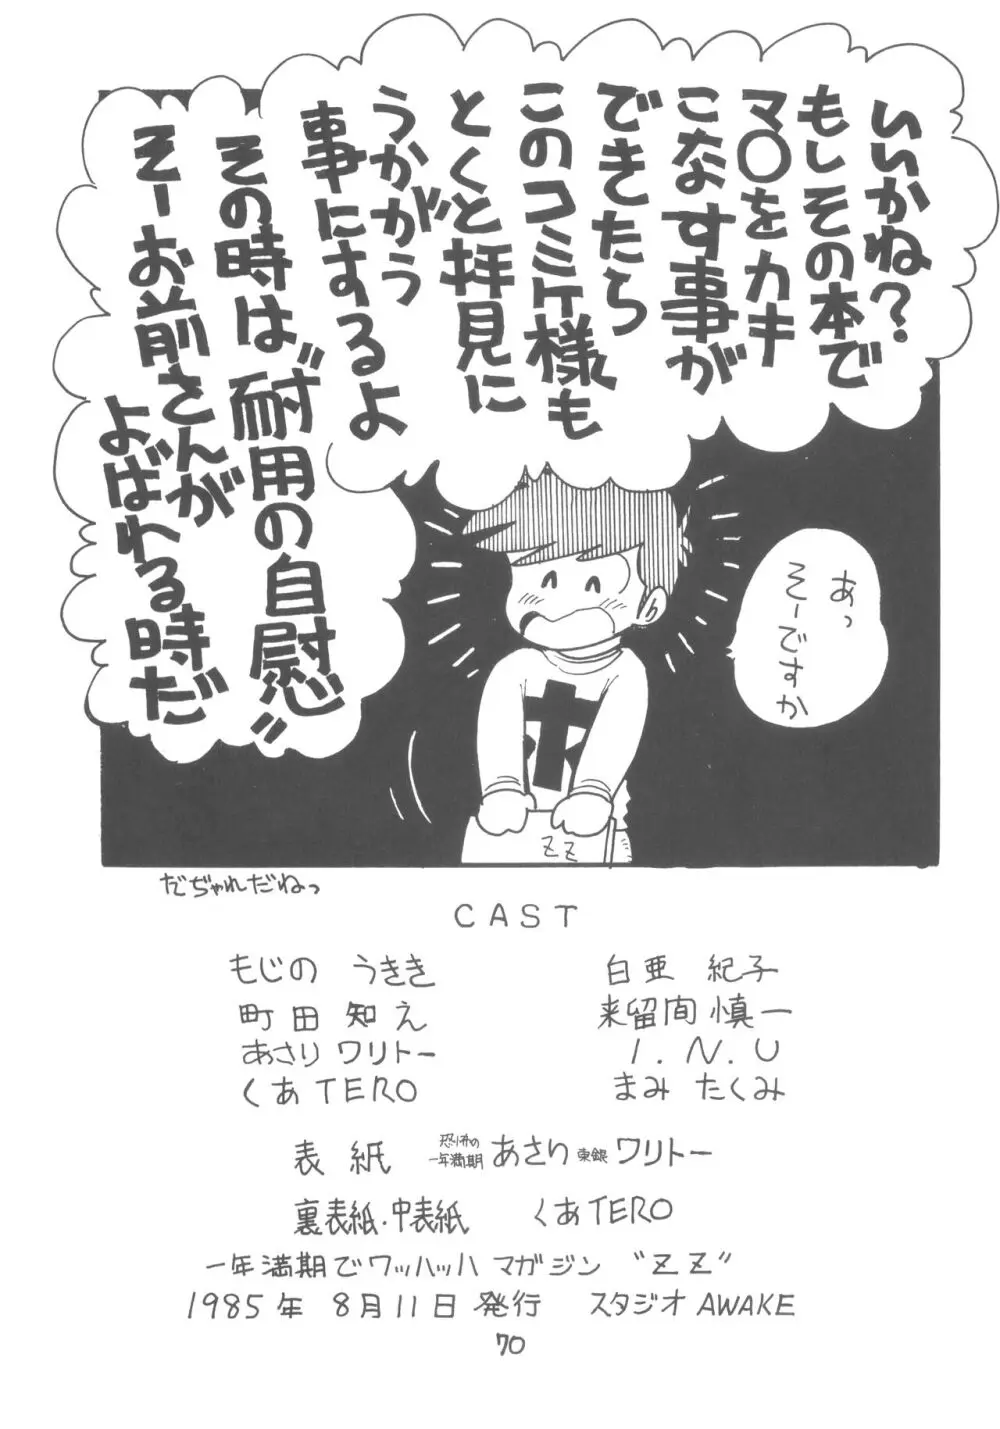 いいかね?
もしその本で
マ○をカキ
こなす事が
できたら
このコミケ様も
とくと拝見に
うかがう
事にするよ
その時は〝耐用の自慰〟
そーお前さんが
よばれる時だ
あっ
そーですか
ホ
ZZ
だぢゃれだねっ
CAST
もじの うきき 白亜 紀子
町田 知え 来留間 慎一
あさり ワリトー I.N.U
くあTERO まみ たくみ
表紙 恐怖の一年満期 あさり 東銀 ワリトー
裏表紙・中表紙 くあTERO
一年満期でワッハッハ マガジン “ZZ”
1985年 8月11日 発行 スタジオ AWAKE
70